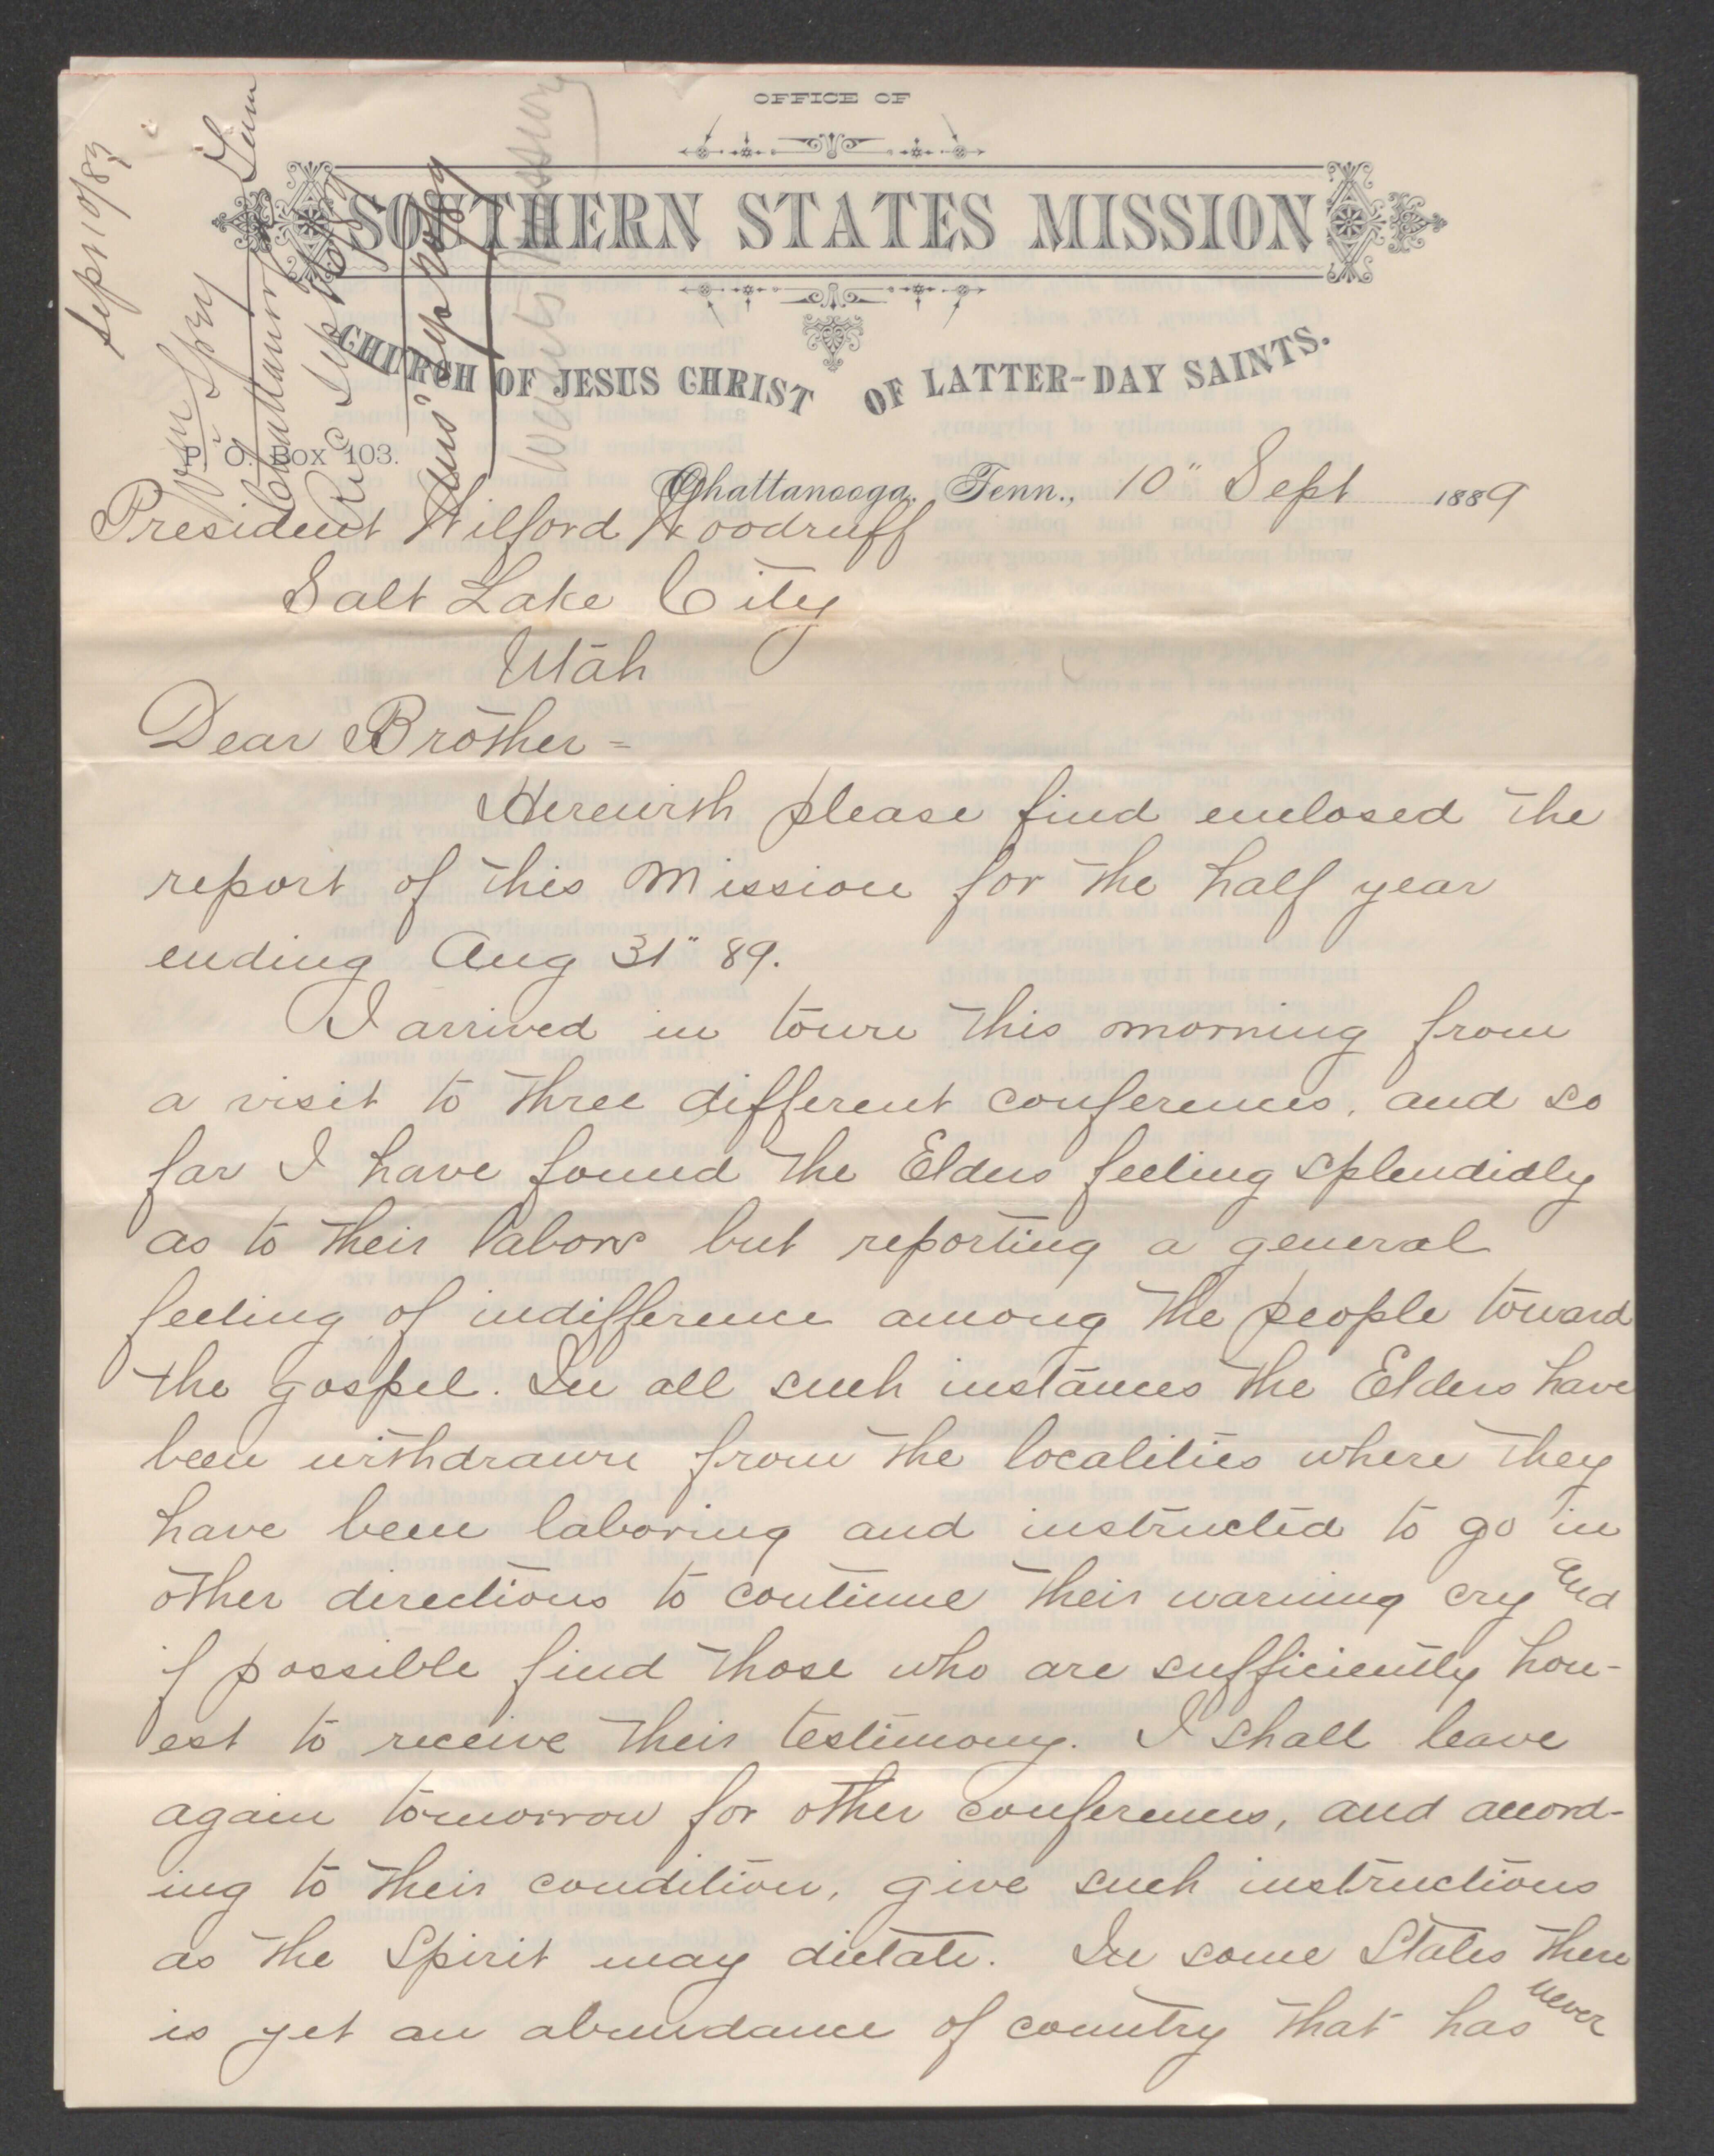 OFFICE OF
SOUTHERN STATES MISSION
CHURCH OF JESUS CHRIST OF LATTER-DAY SAINTS.
Sept 10/89
Wm Spry
Chattanooga Tenn
Recd Sept
Ans' Sept
Wants Missionary
P. O. Box 103.
Chattanooga, Tenn., 10" Sept 1889
President Wilford Woodruff
Salt Lake City
Utah
Dear Brother =
Herewith please find enclosed the
report of this Mission for the half year
ending Aug 31" 89.
I arrived in town this morning from
a visit to three different conferences, and so
far I have found the Elders feeling splendidly
as to their labors but reporting a general
feeling of indifference among the people toward
the gospel. In all such instances the Elders have
been withdrawn from the localities where they
have been laboring and instructed to go in
other directions to continue their warning cry and
if possible find those who are sufficiently hon-
est to receive their testimony. I shall leave
again tomorrow for other conferences, and accord-
ing to their condition, give such instructions
as the Spirit may dictate. In some States there
is yet an abundance of country that has never